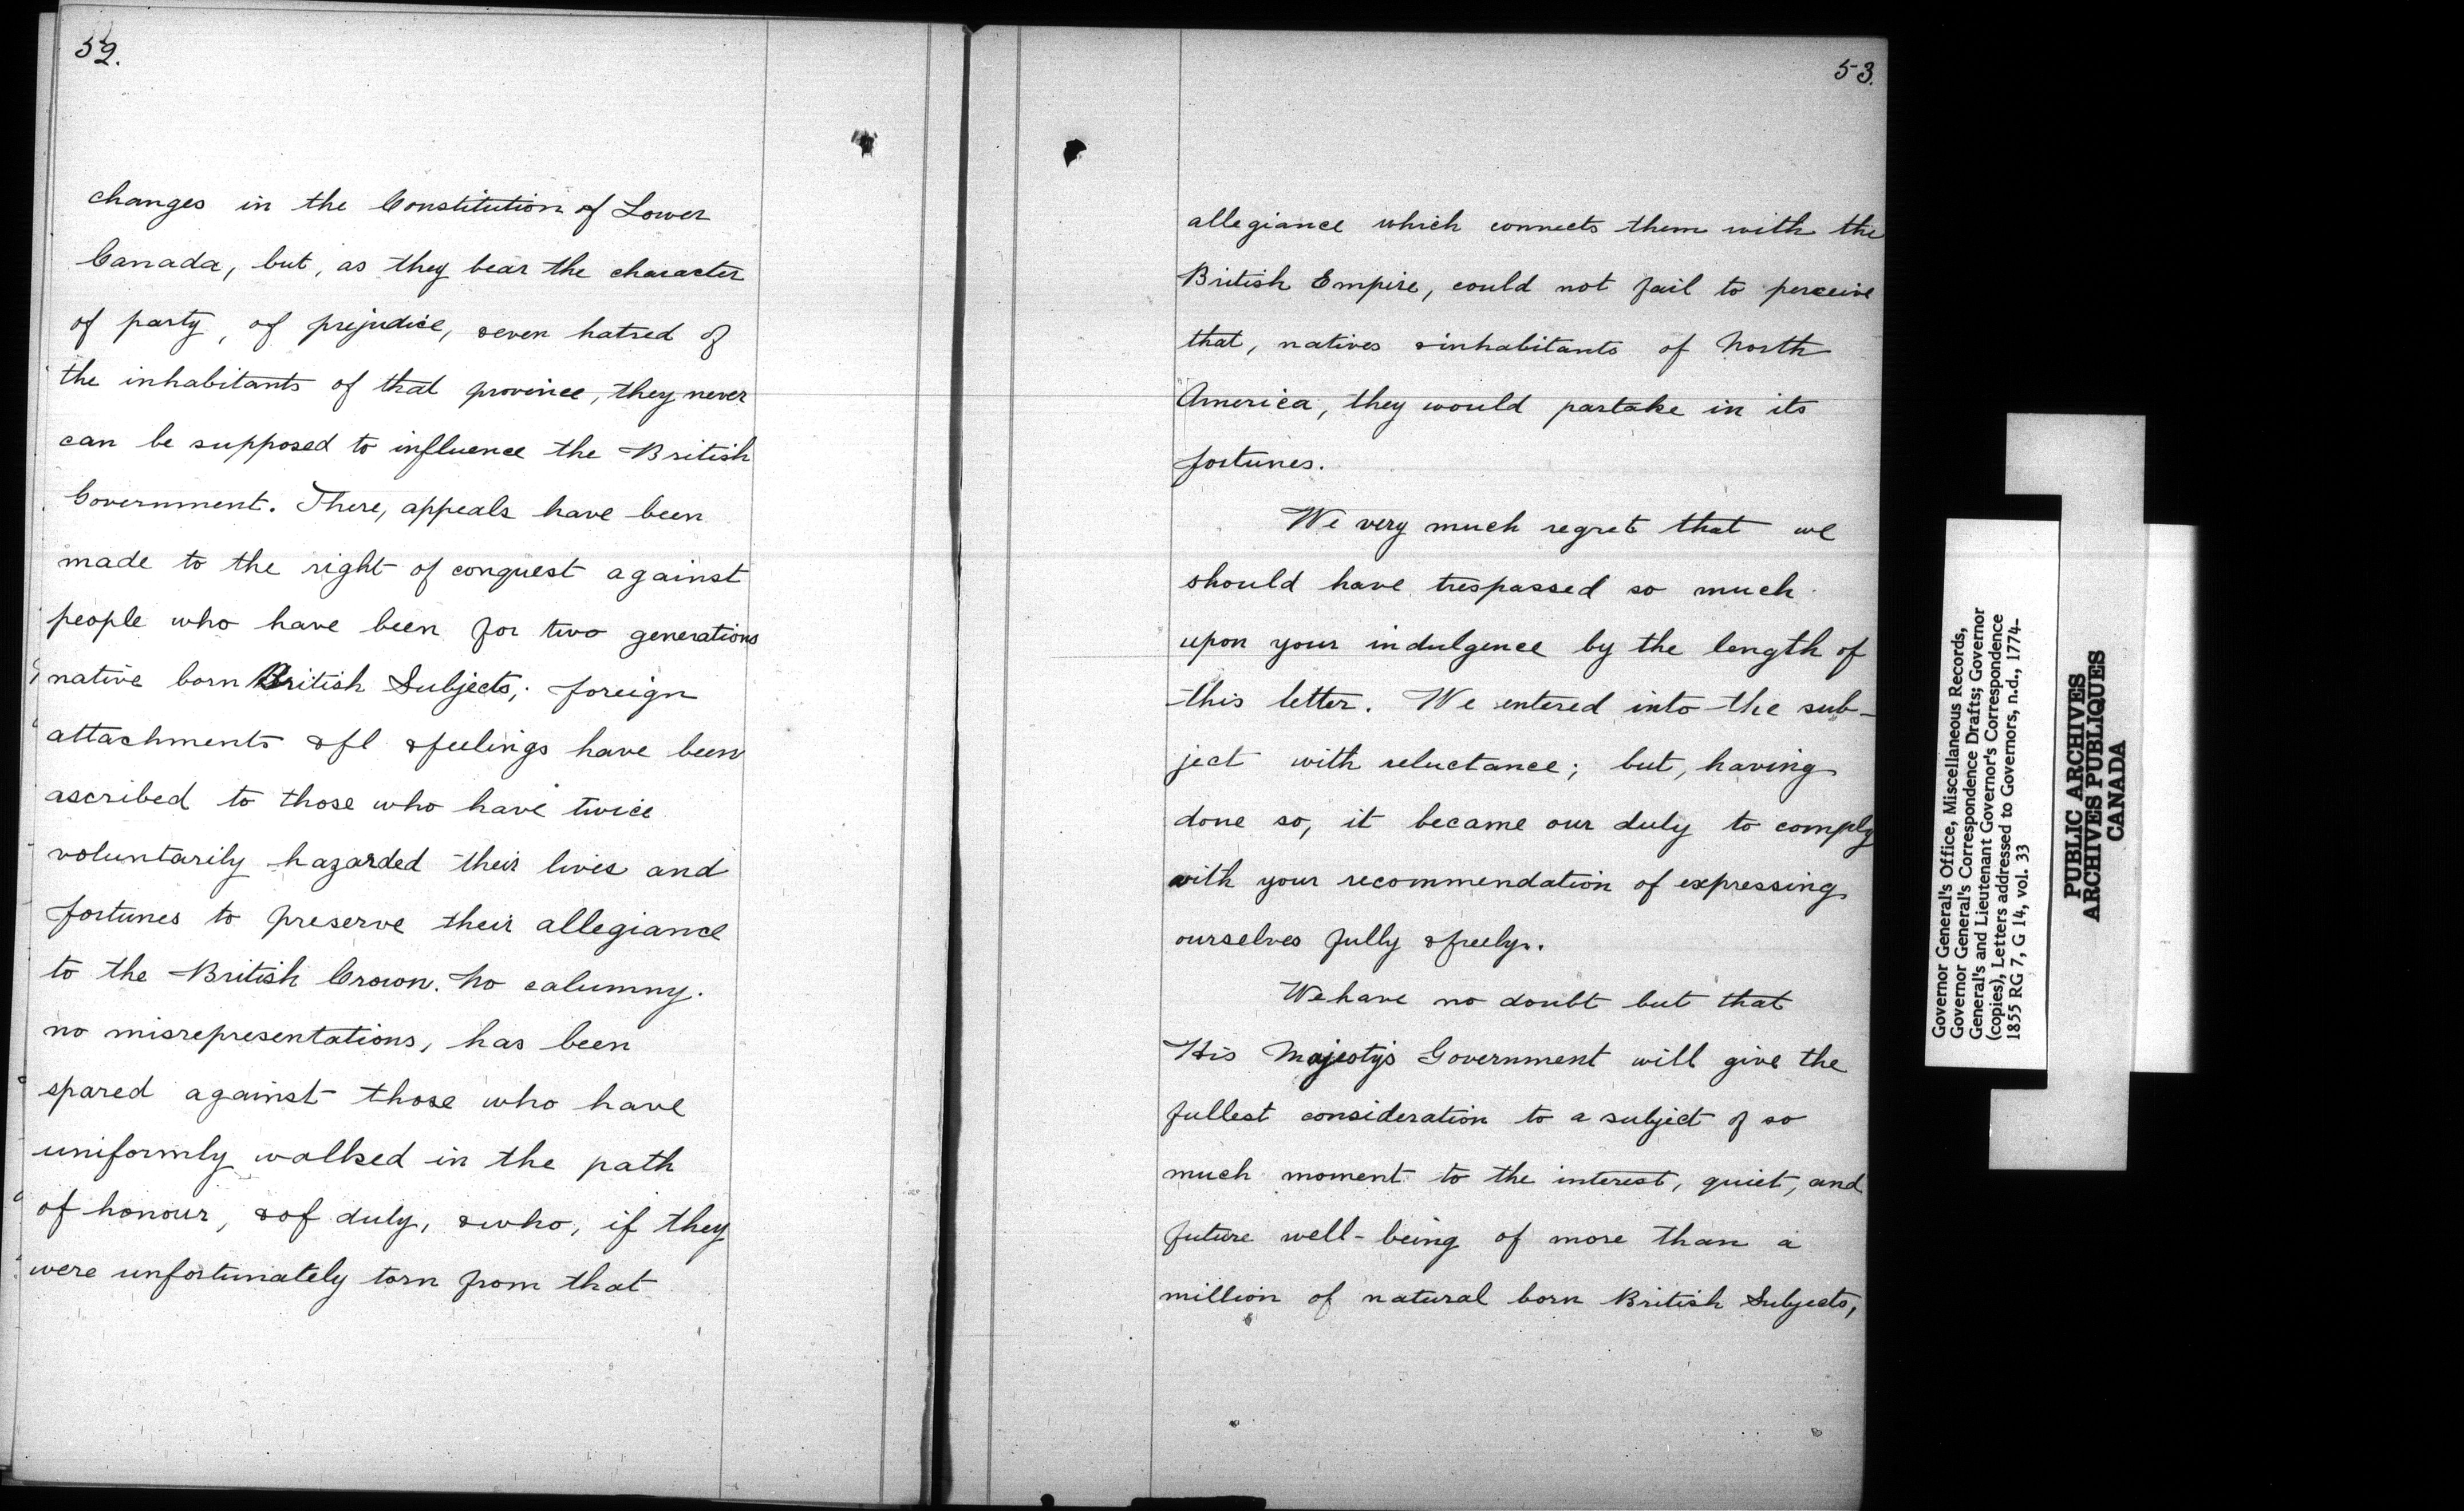 52.
changes in the Constitution of Lower
Canada, but, as they bear the character
of party, of prejudice, & even hatred of
the inhabitants of that province, they never
can be supposed to influence the British
Government. There, appeals have been
made to the right of conquest against
people who have been for two generations
native born British Subjects; foreign
attachments & fl & feelings have been
ascribed to those who have twice
voluntarily hazarded their lives and
fortunes to preserve their allegiance
to the British Crown. No calumny.
no misrepresentations, has been
spared against those who have
uniformly walked in the path
of honour, & of duty, & who, if they
were unfortunately torn from that
53.
allegiance which connects them with the
British Empire, could not fail to perceive
that, natives & inhabitants of North
America, they would partake in its
fortunes.
We very much regret that we
should have trespassed so much
upon your indulgence by the length of
this letter. We entered into the sub-
ject with reluctance; but, having
done so, it became our duty to comply
with your recommendation of expressing
ourselves fully & freely.
We have no doubt but that
His Majesty's Government will give the
fullest consideration to a subject of so
much moment to the interest, quiet, and
future well-being of more than a
million of natural born British Subjects,
Governor General's Office, Miscellaneous Records,
Governor General's Correspondence Drafts; Governor
General's and Lieutenant Governor's Correspondence
(copies), Letters addressed to Governors, n.d., 1774-
1855 RG 7, G 14, vol. 33
PUBLIC ARCHIVES
ARCHIVES PUBLIQUES
CANADA